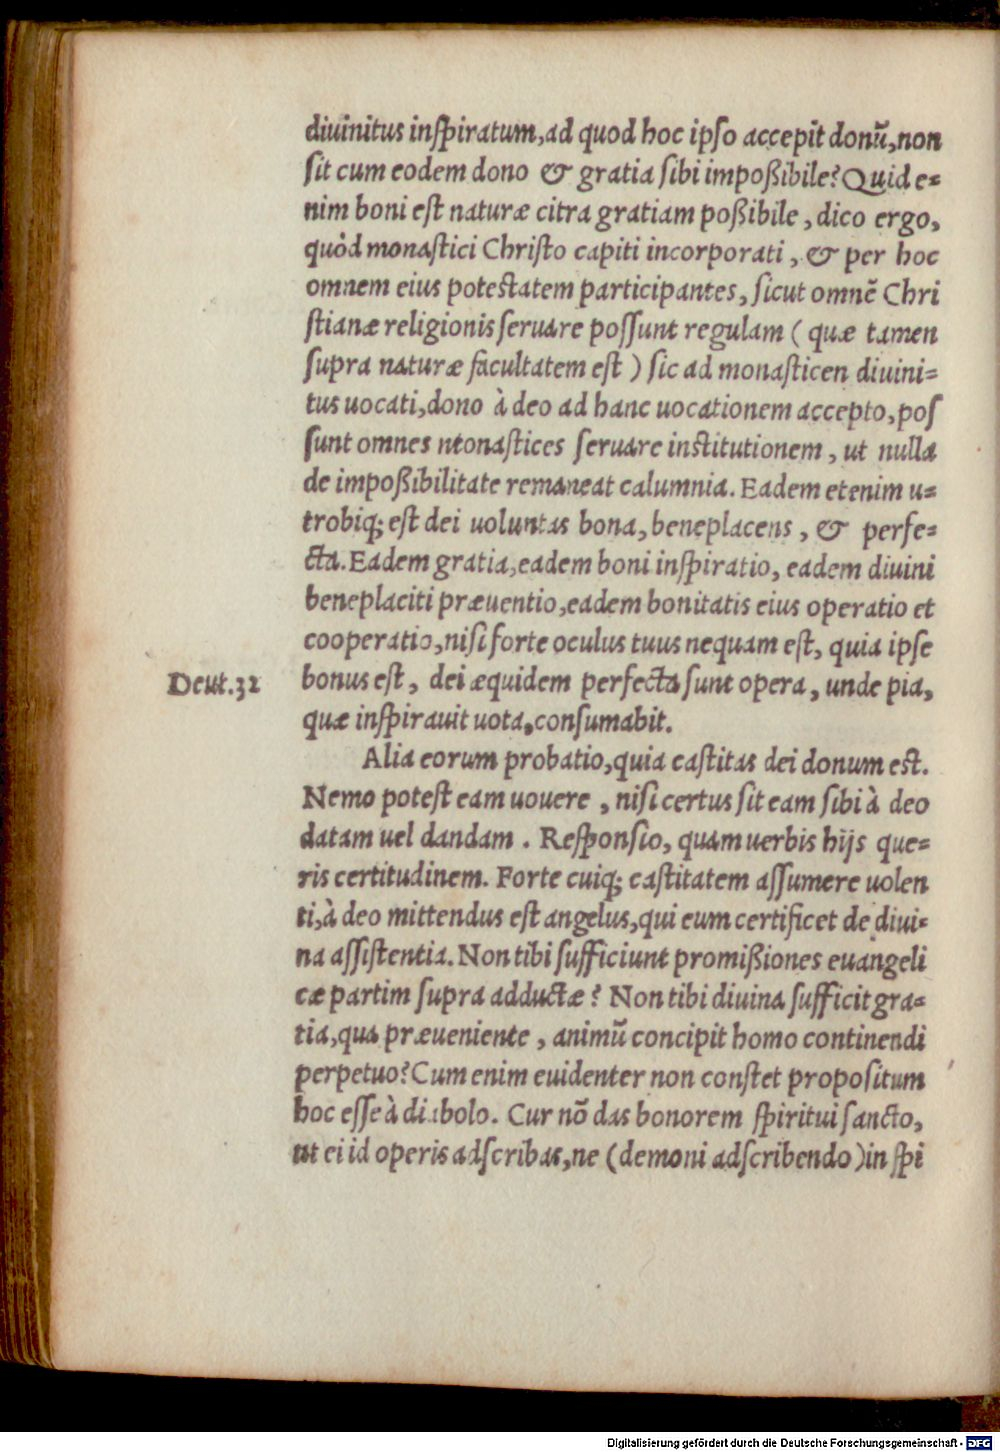 diuinitus inſpiratum,ad quod hoc ipſo accepit donũ,non
ſit cum eodem dono & gratia ſibi impoßibile? Quid e-
nim boni est naturæ citra gratiam poßibile, dico ergo,
quòd monaſtici Chriſto capiti incorporati, & per hoc
omnem eius potestatem participantes, ſicut omnẽ Chri
ſtianæ religionis ſeruare poſſunt regulam ( quæ tamen
ſupra naturæ facultatem eſt ) ſic ad monaſticen diuini=
tus uocati,dono à deo ad hanc uocationem accepto,poſ
ſunt omnes monaſtices ſeruare inſtitutionem, ut nulla
de impoßibilitate remaneat calumnia. Eadem etenim u=
trobiq; eſt dei uoluntas bona, beneplacens, & perfe=
cta. Eadem gratia,eadem boni inſpiratio, eadem diuini
beneplaciti præuentio,eadem bonitatis eius operatio et
cooperatio,niſi forte oculus tuus nequam eſt, quia ipſe
Deut.32 bonus eſt, dei æquidem perfecta ſunt opera, unde pia,
quæ inſpirauit uota,conſumabit.
Alia eorum probatio,quia caſtitas dei donum eſt.
Nemo poteſt eam uouere, niſi certus ſit eam ſibi à deo
datam uel dandam. Reſponſio, quam uerbis hijs que=
ris certitudinem. Forte cuiq; caſtitatem aſſumere uolen
ti,à deo mittendus eſt angelus,qui eum certificet de diui-
na aſſiſtentia. Non tibi ſufficiunt promißiones euangeli
cæ partim ſupra adductæ? Non tibi diuina ſufficit gra=
tia,qua præueniente, animũ concipit homo continendi
perpetuo? Cum enim euidenter non conſtet propoſitum
hoc eſſe à diabolo. Cur nõ das bonorem ſpiritui ſancto,
ut ei id operis adſcribas,ne (demoni adſcribendo)in ſpi
Digitalisierung gefördert durch die Deutsche Forschungsgemeinschaft - DFG